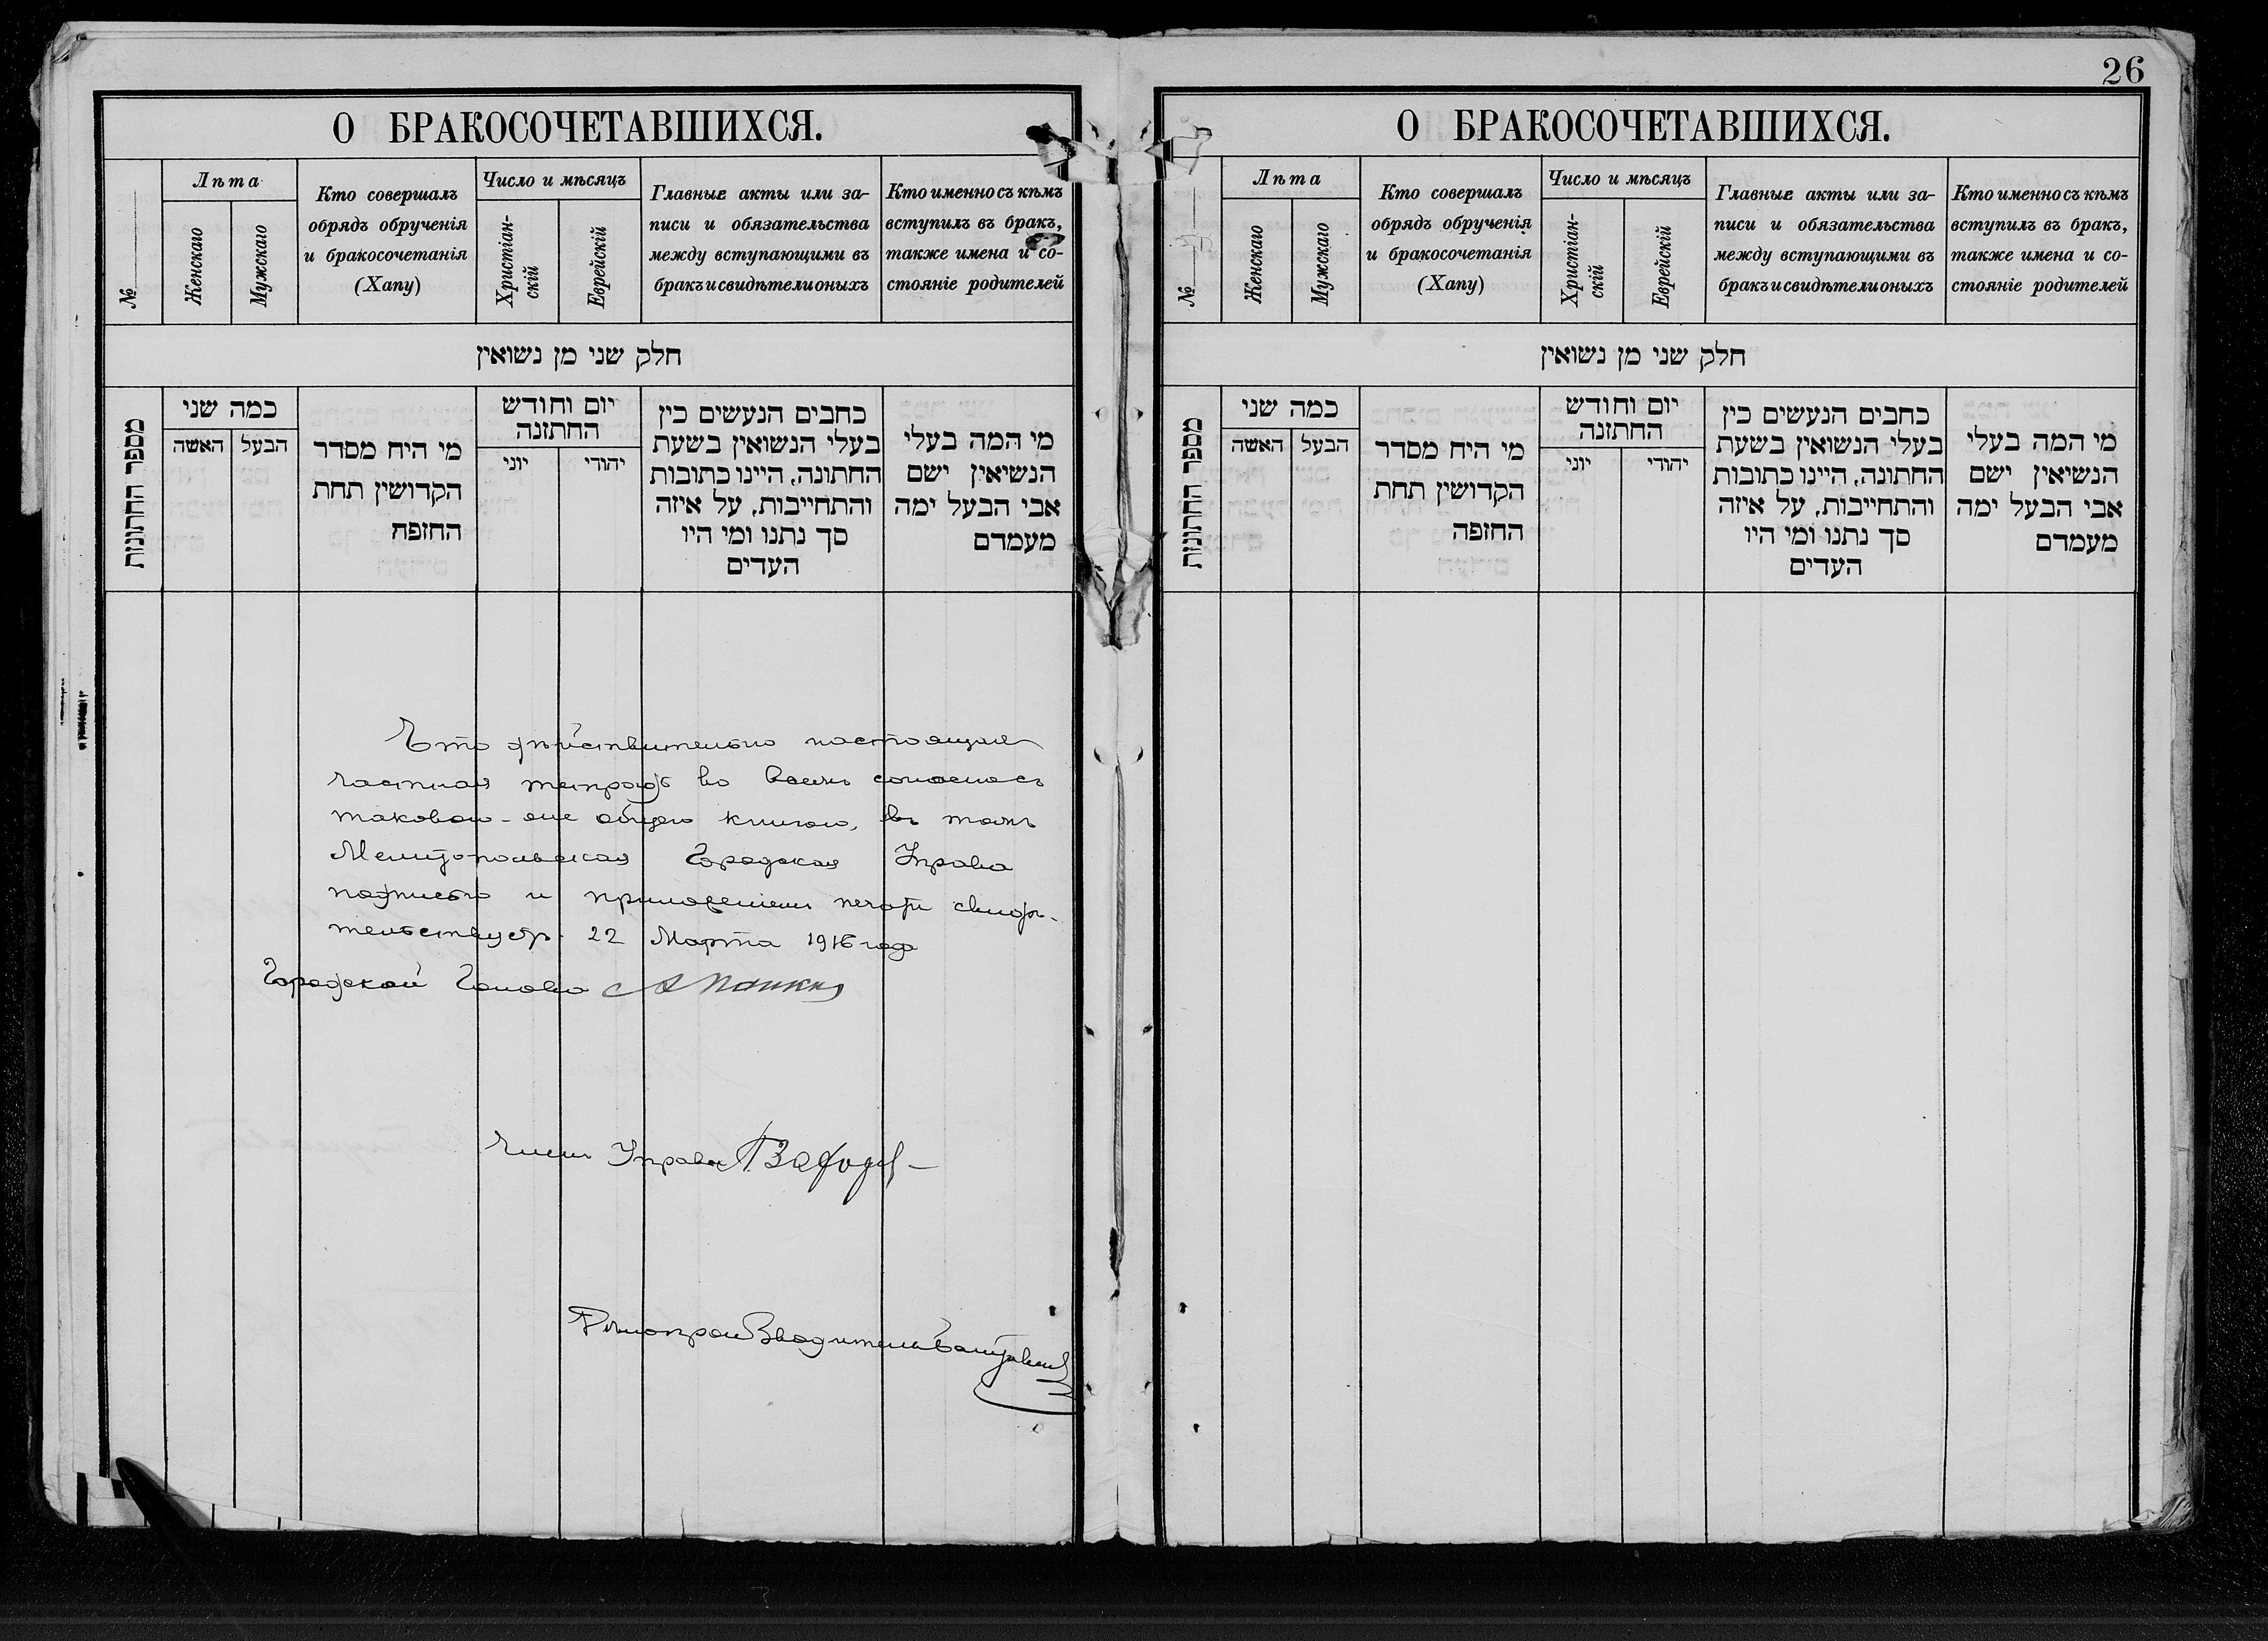 26
О БРАКОСОЧЕТАВШИХСЯ.
№
Лѣта
Женскаго
Мужскаго
Кто совершалъ
обрядъ обрученія
и бракосочетанія
(Хапу)
Число и мѣсяцъ
Христіан-
скій
Еврейскій
Главные акты или за-
писи и обязательства
между вступающими въ
бракъ и свидѣтели оныхъ
Кто именно съ кѣмъ
вступилъ въ бракъ,
также имена и со-
стояніе родителей
חלק שני מן נשואין
מספר החתונות
כמה שני
האשה
הבעל
מי היח מסדר
הקדושין תחת
החופח
יום וחודש
החתונה
יוני
יהודי
כחבים הנעשים כין
בעלי הנשואין בשעת
החתונה, היינו כתובות
והתחייבות, על איזה
סך נתנו ומי היו
העדים
מי המה בעלי
הנשיאין ישם
אבי הבעל ימה
מעמדם
Что дѣйствительно настоящая
частная тетрадь во всемъ согласна съ
таковою-же общею книгою, въ томъ
Мелитопольская Городская Управа
подписью и приложеніемъ печати свидѣ-
тельствуетъ. 22 Марта 1916 года
Городской Голова
Членъ Управы
Дѣлопроизводитель
О БРАКОСОЧЕТАВШИХСЯ.
№
Лѣта
Женскаго
Мужскаго
Кто совершалъ
обрядъ обрученія
и бракосочетанія
(Хапу)
Число и мѣсяцъ
Христіан-
скій
Еврейскій
Главные акты или за-
писи и обязательства
между вступающими въ
бракъ и свидѣтели оныхъ
Кто именно съ кѣмъ
вступилъ въ бракъ,
также имена и со-
стояніе родителей
חלק שני מן נשואין
מספר החתונות
כמה שני
האשה
הבעל
מי היח מסדר
הקדושין תחת
החופה
יום וחודש
החתונה
יוני
יהודי
כחבים הנעשים כין
בעלי הנשואין בשעת
החתונה, היינו כתובות
והתחייבות, על איזה
סך נתנו ומי היו
העדים
מי המה בעלי
הנשיאין ישם
אבי הבעל ימה
מעמדם